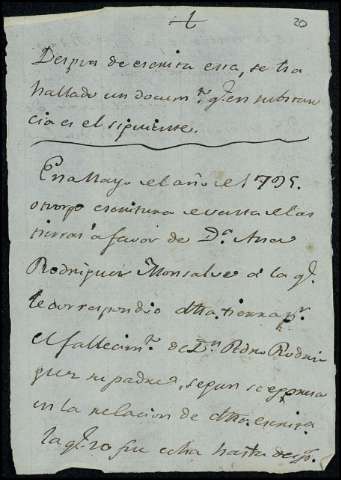 20
Despues de escrita esta, se ha
hallado un docum.to q.e en substan
cia es el siguiente.
En Mayo el año el 1795.
otorgo escritura venta las
tierras á favor de D.a Ana
Rodriguez Monsalve á la q.e
le correspondio dha tierra p.r
el fallecim.to de D.n Pedro Rodri
guez su padre, segun se expresa
en la relacion de dha escrit.a
la q.e no fue